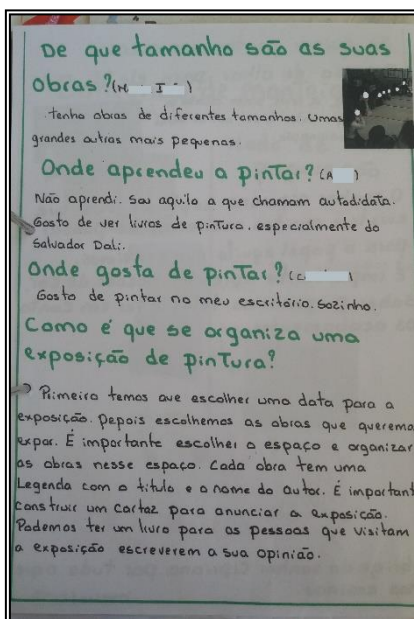 De que tamanho são as suas
obras? (M I )
. tenho obras de diferentes tamanhos. Umas
grandes outras mais pequenas.
Onde aprendeu a pintar? (A )
Não aprendi. Sou aquilo a que chamam autodidata.
Gosto de ver livros de pintura. especialmente do
Salvador Dali.
Onde gosta de pintar? (C )
Gosto de pintar no meu escritório. Sozinho.
Como é que se organiza uma
exposição de pintura?
Primeiro temos que escolher uma data para a
exposição. Depois escolhemos as obras que querema
expor. É importante escolher o espaço e organizar
as obras nesse espaço. Cada obra tem uma
Legenda com o título e o nome do autor. É important
construir um cartaz para anunciar a exposição.
Podemos ter um livro para as pessoas que visitam
a exposição escreverem a sua opinião.